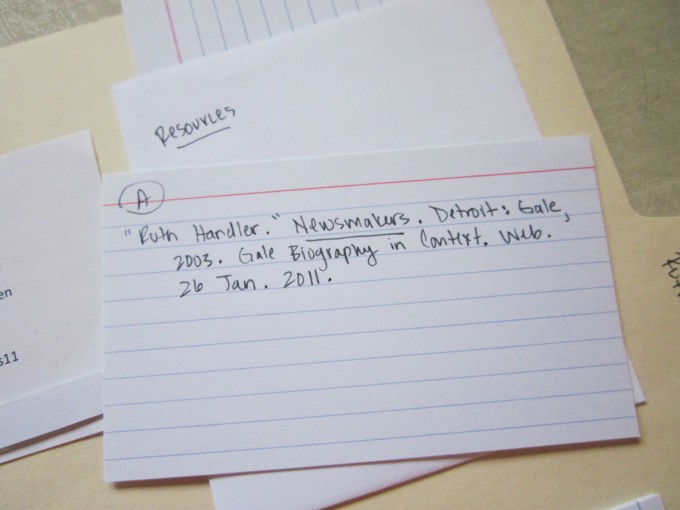 Resources
A
"Ruth Handler." Newsmakers. Detroit: Gale,
2003. Gale Biography in Context. Web.
26 Jan. 2011.
en
s11